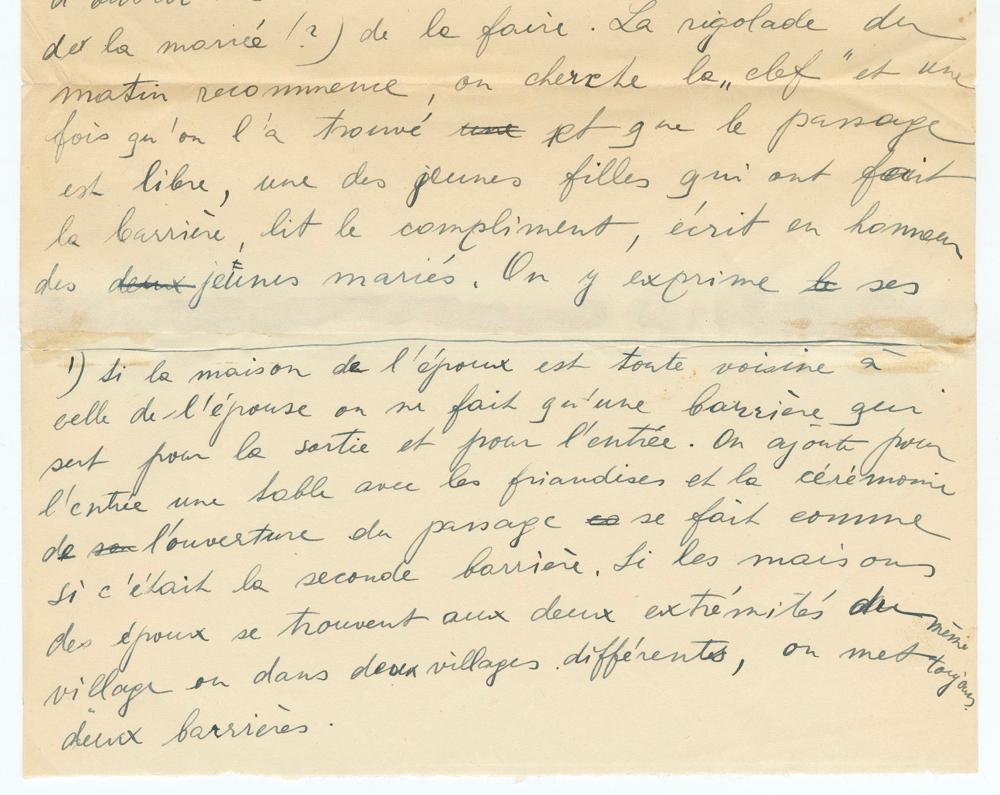 de la mariée !?) de la faire. La rigolade du
matin recommence, on cherche la „clef" et une
fois qu'on l'a trouvé une et que le passage
est libre, une des jeunes filles qui ont fait
la barrière, lit le compliment, écrit en honneur
des deux jeunes mariés. On y exprime le ses
1) Si la maison de l'époux est toute voisine à
celle de l'épouse on ne fait qu'une barrière qui
sert pour la sortie et pour l'entrée. On ajoute pour
l'entrée une table avec les friandises et la cérémonie
de son l'ouverture du passage se fait comme
si c'était la seconde barrière. Si les maisons
des époux se trouvent aux deux extrémités du même
village ou dans deux villages différents, on met toujours
deux barrières.